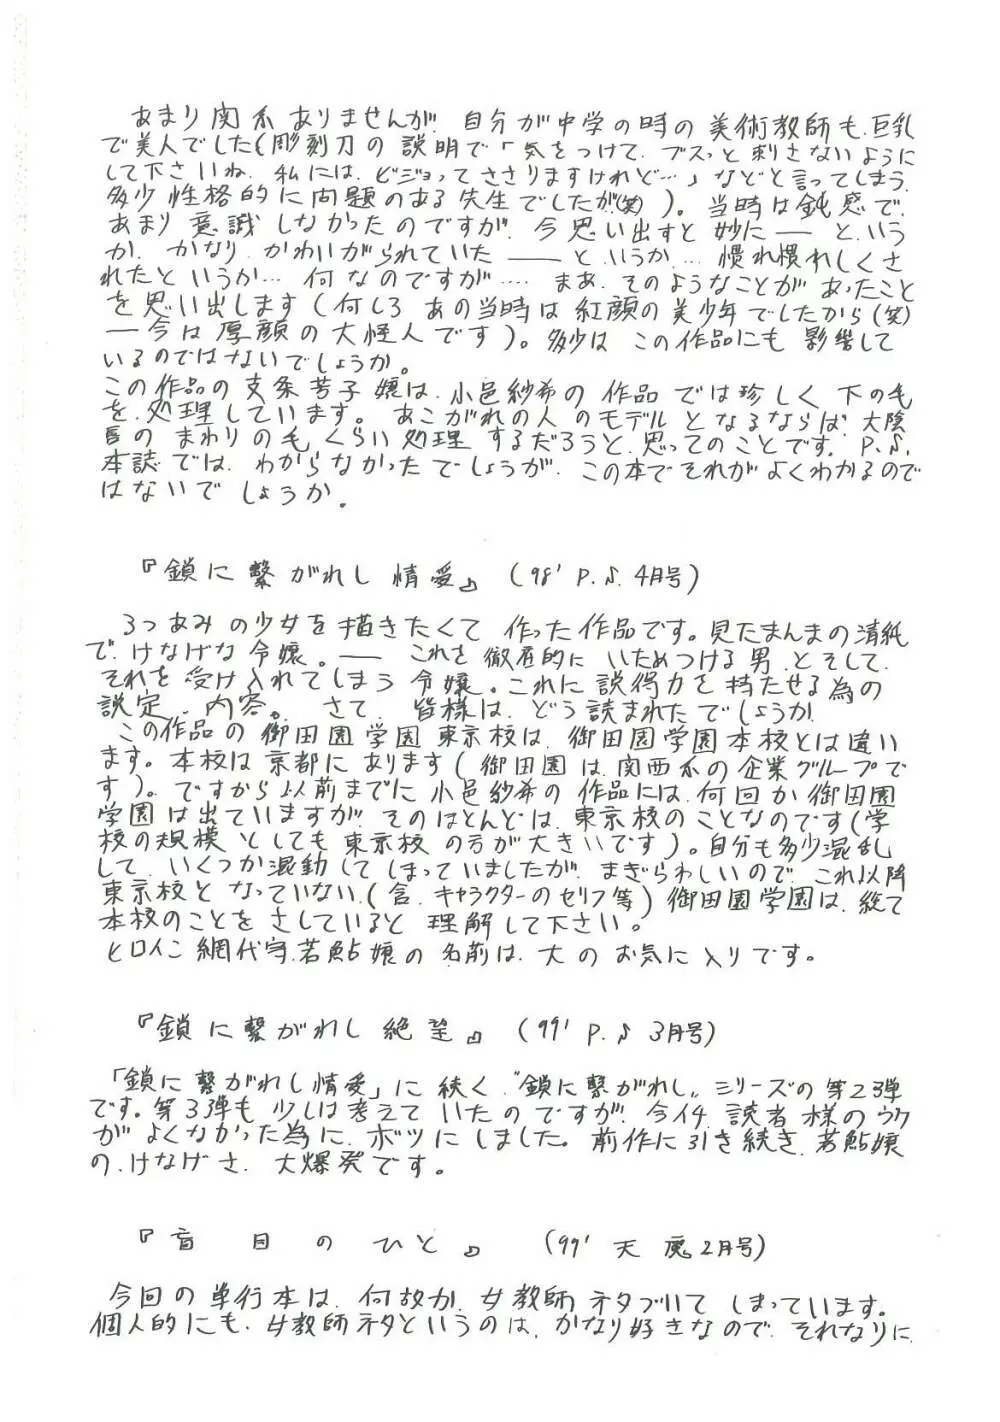 あまり関係ありませんが、自分が中学の時の美術教師も、巨乳
で美人でした(彫刻刀の説明で「気をつけて、ブスっと刺さないように
して下さいね、私には、ビジョってささりますけれど…」などと言ってしまう、
多少性格的に問題のある先生でしたが(笑))。当時は鈍感で、
あまり意識しなかったのですが、今思い出すと妙に——と、いう
か、かなり、かわいがられていた——と、いうか、… 慣れ慣れしくさ
れたというか… 何なのですが…. まあ、そのようなことがあったこと
を思い出します(何しろあの当時は紅顔の美少年でしたから(笑)
—今は厚顔の大怪人です)。多少は、この作品にも影響して
いるのではないでしょうか。
この作品の支条芳子嬢は、小邑紗希の作品では珍しく下の毛
を処理しています。あこがれの人のモデルとなるならば、大陰
唇のまわりの毛くらい処理するだろうと、思ってのことです。P.S.
本誌では、わからなかったでしょうが、この本でそれがよくわかるので
はないでしょうか。
『鎖に繋がれし情愛』(98' P.S. 4月号)
3つあみの少女を描きたくて作った作品です。見たまんまの清純
で、けなげな令嬢。—— これを徹底的にいためつける男、とそして、
それを受け入れてしまう令嬢。これに説得力を持たせる為の
設定、内容。さて、皆様は、どう読まれたでしょうか。
この作品の御田園学園東京校は、御田園学園本校とは違い
ます。本校は京都にあります(御田園は、関西系の企業グループで
す)。ですから以前までに小邑紗希の作品には、何回か御田園
学園は出ていますが、そのほとんどは、東京校のことなのです(学
校の規模としても東京校の方が大きいです)。自分も多少混乱
して、いくつか混動してしまっていましたが、まぎらわしいので、これ以降
東京校となっていない(含、キャラクターのセリフ等)御田園学園は、総て
本校のことをさしていると理解して下さい。
ヒロイン網代守若鮎嬢の名前は、大のお気に入りです。
『鎖に繋がれし絶望』(99' P.S 3月号)
「鎖に繋がれし情愛」に続く“鎖に繋がれし„シリーズの第2弾
です。第3弾も少しは考えていたのですが、今イチ読者様のウケ
がよくなかった為に、ボツにしました。前作に引き続き、若鮎嬢
の、けなげさ、大爆発です。
『盲目のひと』(99' 天魔2月号)
今回の単行本は、何故か、女教師ネタづいてしまっています。
個人的にも、女教師ネタというのは、かなり好きなので、それなりに、